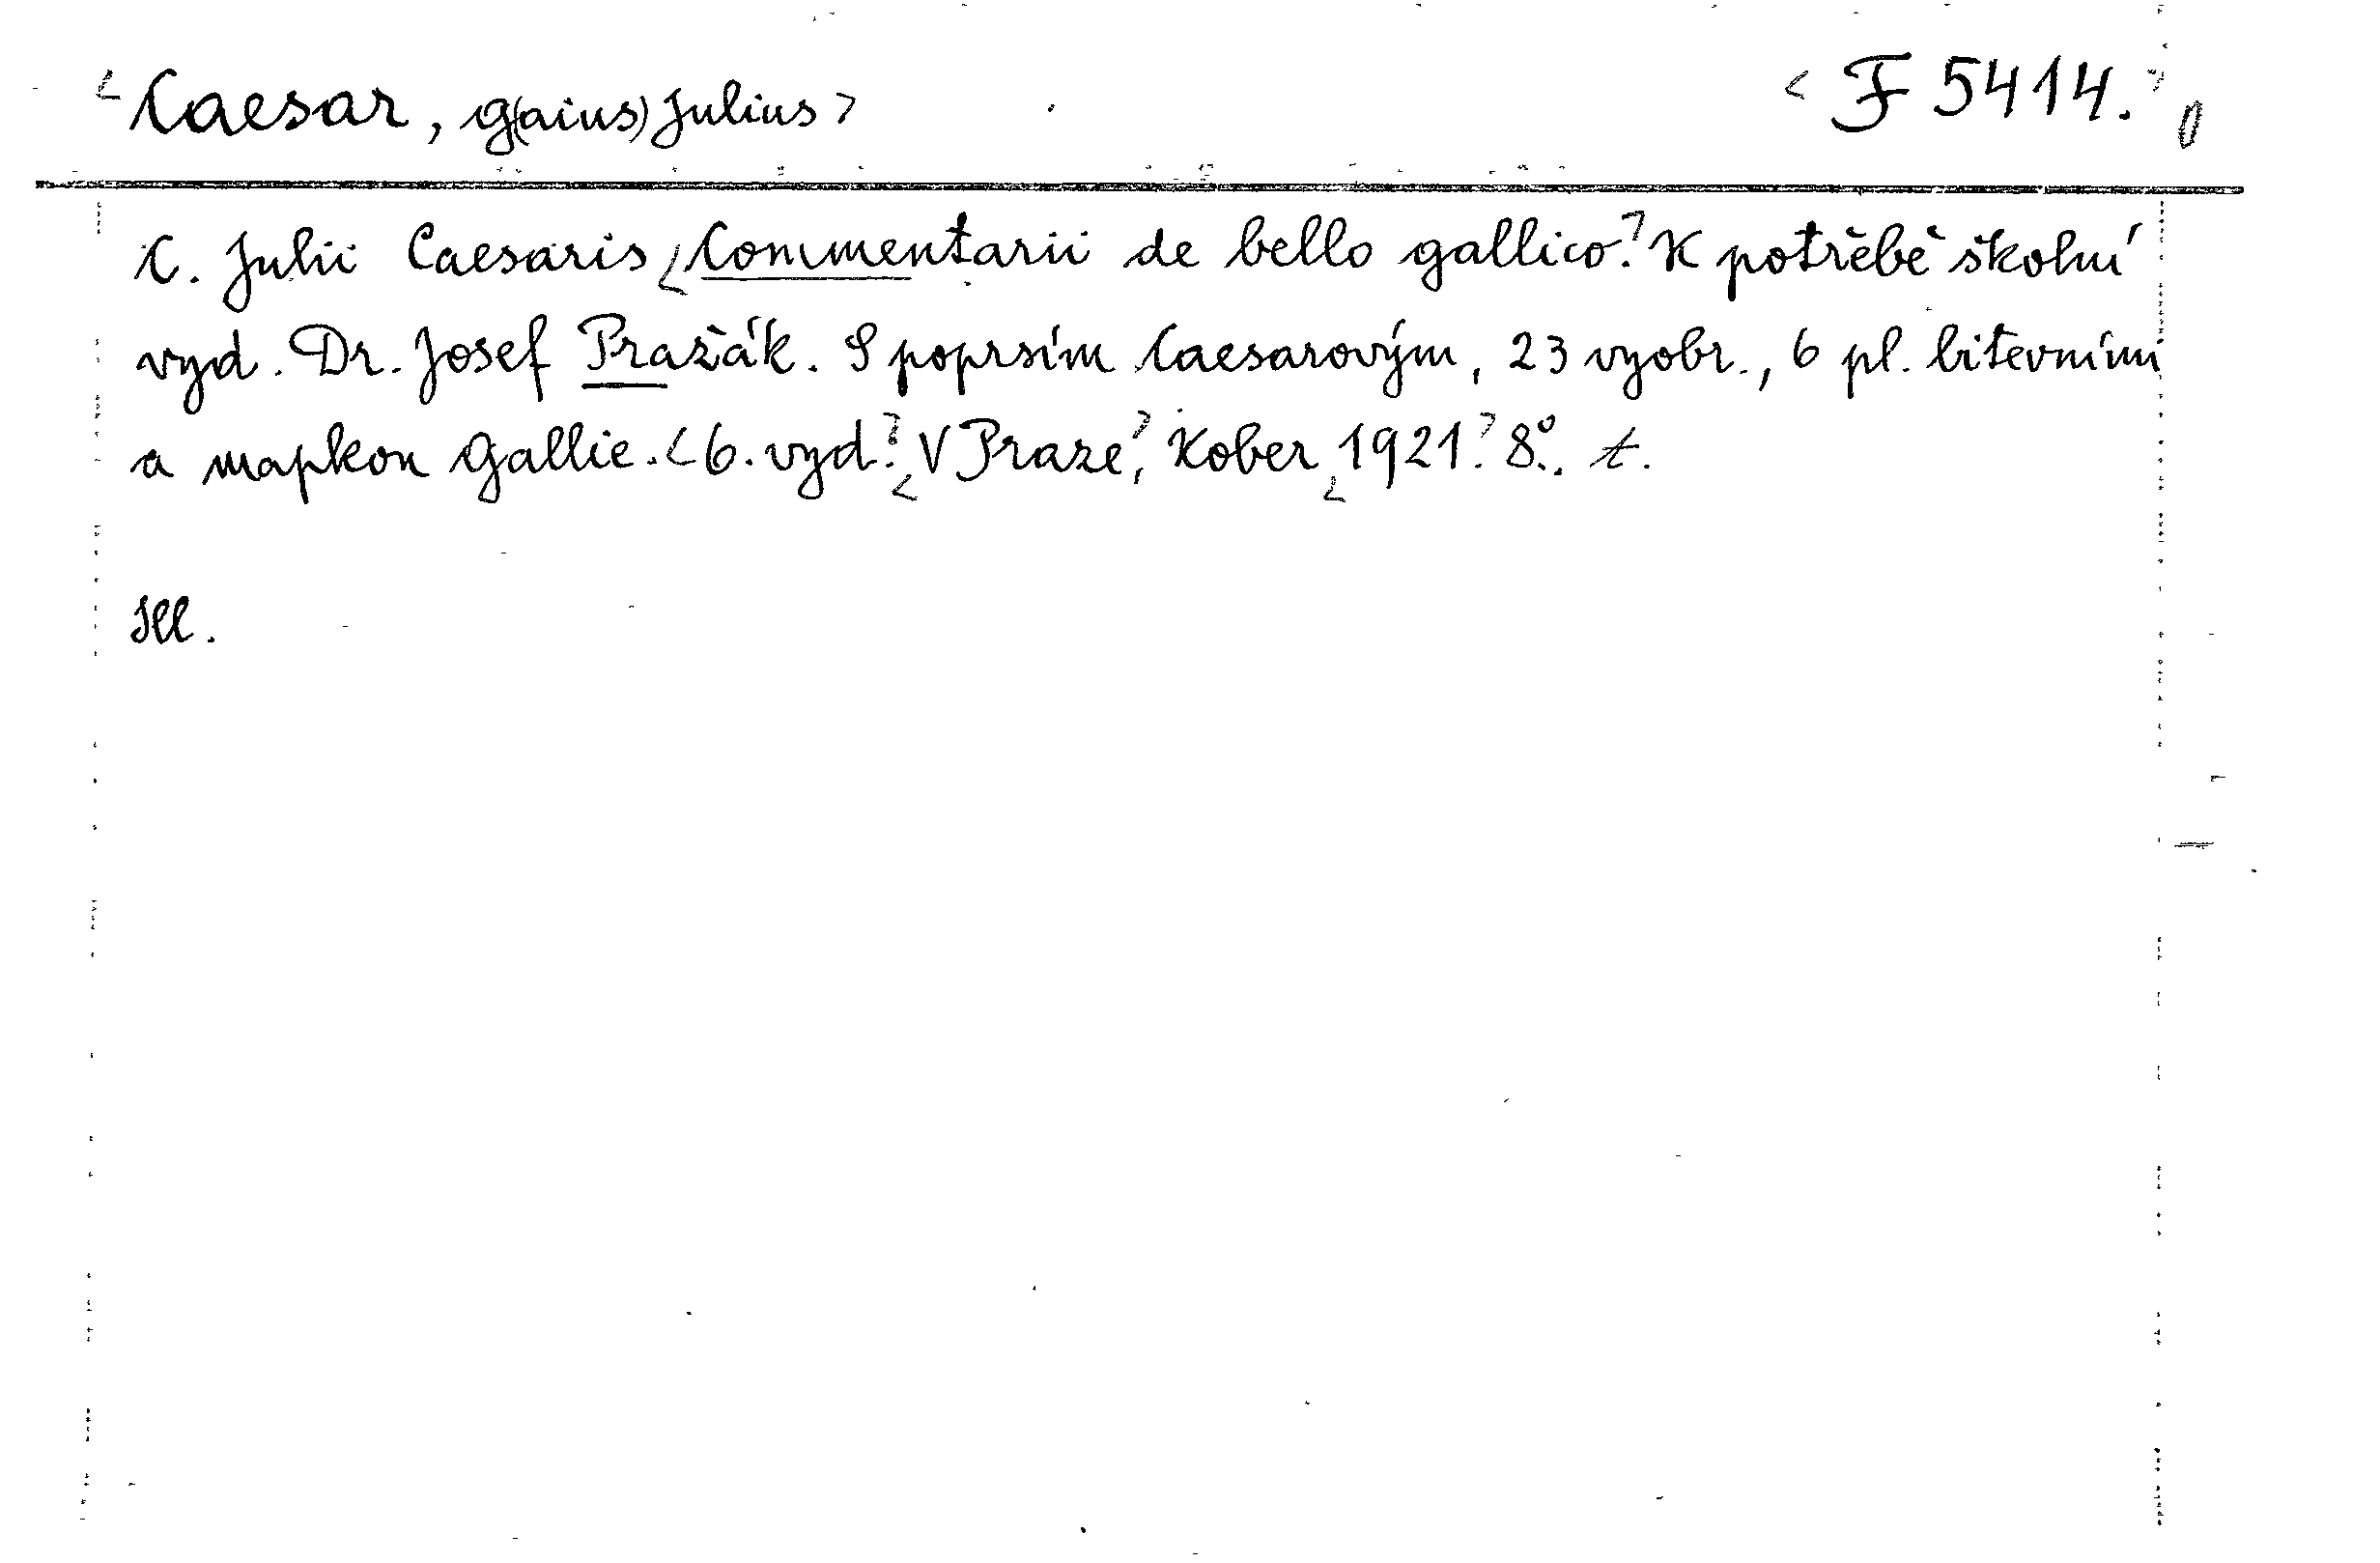 <Caesar, G(aius) Julius> <F 5414.> 0
C. Julii Caesaris <Commentarii de bello gallico.> K potřebě školní
vyd. Dr. Josef Pražák. S poprsím Caesarovým, 23 vyobr., 6 pl. bitevními
a mapkou Gallie. <6. vyd.> <V Praze>, Kober <1921.> 8°. t.
Ill.